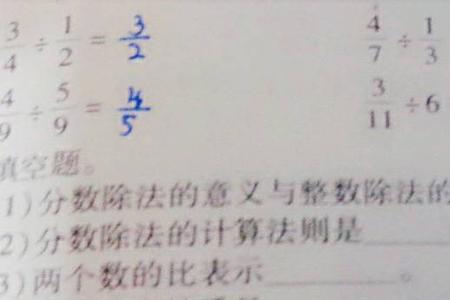 3/4 ÷ 1/2 = 3/2 4/7 ÷ 1/3
4/9 ÷ 5/9 = 4/5 3/11 ÷ 6
填空题。
1)分数除法的意义与整数除法的
2)分数除法的计算法则是
3)两个数的比表示。